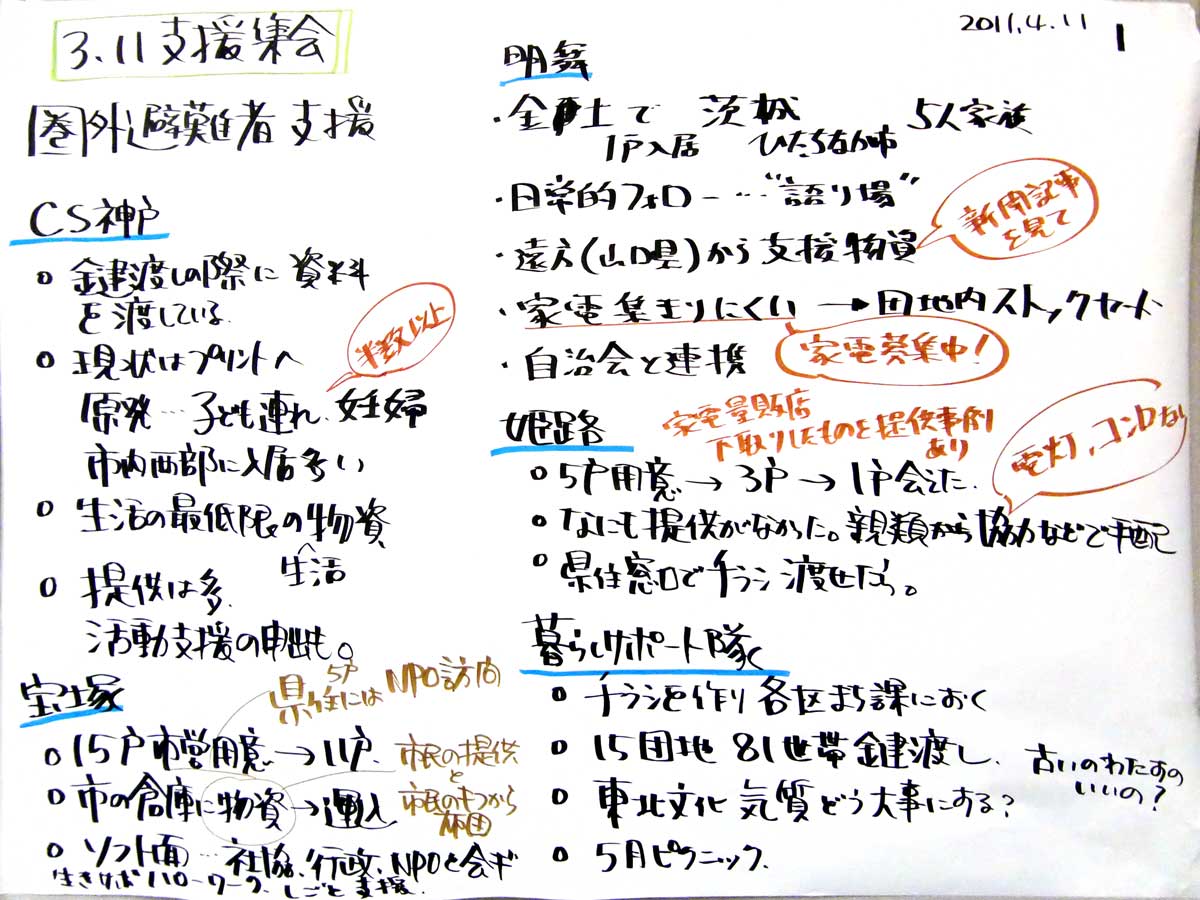 3.11支援集会
2011.4.11 1
圏外避難者支援
CS神戸
○ 鍵渡しの際に資料
を渡している
○ 現状はプリントへ
半数以上
原発…子ども連れ、妊婦
市内西部に入居多い
○ 生活の最低限の物資
生活
○ 提供は多
活動支援の申出も。
宝塚
県住には5戸 NPO訪問
○ 15戸市営用意→11戸
市民の提供
と
○ 市の倉庫に物資→運入
市民のもつから
布団
○ ソフト面…社協、行政、NPOと会ギ
生きサポ ハローワーク しごと支援
明舞
・全戸土で 茨城 5人家族
1戸入居 ひたちなか市
・日常的フォロー…“語り場”
新聞記事
を見て
・遠方(山口県)から支援物資
・家電集まりにくい→団地内ストックヤード
・自治会と連携
家電募集中!
姫路
家電量販店
下取りしたものを提供事例
あり
電灯、コンロなし
○ 5戸用意→3戸→1戸会えた
○ なにも提供がなかった。親類から協力などで手配
○ 県住窓口でチラシ渡せたら。
暮らしサポート隊
○ チラシを作り各区まち課におく
○ 15団地 81世帯鍵渡し、
古いのわたすの
いいの?
○ 東北文化 気質どう大事にする?
○ 5月ピクニック、